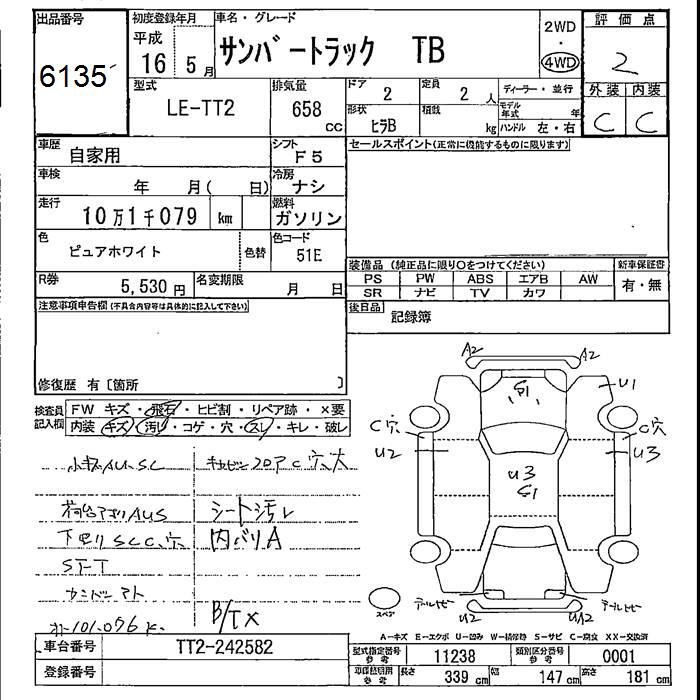 出品番号
6135
初度登録年月
平成
16 5月
車名・グレード
サンバートラック TB
2WD
・
4WD
評価点
2
外装 内装
C C
型式
LE-TT2
排気量
658
cc
ドア
2
定員
2 人
形状
ヒラB
積載
kg
ディーラー・並行
モデル年式 年
ハンドル 左・右
車歴
自家用
シフト
F5
セールスポイント(正常に機能するものに限ります)
車検
年 月( 日)
冷房
ナシ
走行
10万1千079 km
燃料
ガソリン
色
ピュアホワイト
色替
色コード
51E
R券
5,530 円
名変期限
月 日
装備品 (純正品に限り○をつけてください)
PS PW ABS エアB AW
SR ナビ TV カワ
新車保証書
有・無
後日品
記録簿
注意事項申告欄(不具合内容等は具体的に記入して下さい)
修復歴 有〔箇所 〕
検査員記入欄
FW キズ・飛石・ヒビ割・リペア跡・×要
内装 キズ・汚レ・コゲ・穴・スレ・キレ・破レ
小キズAU.SC
キャビンフロアC穴大
荷台アオリAUS
シート汚レ
下廻りSCC穴
内バリA
ST-T
カンバンアト
オ-101.076K
B/TX
A2 A2
S1
U1
C穴
U2
C穴
U3
U3
S1
スペア
アールビー
U2
アールビー
UA2
A-キズ E-エクボ U-凹み W-補修跡 S-サビ C-腐食 XX-交換済
車台番号
TT2-242582
登録番号
型式指定番号
参考
11238
類別区分番号
参考
0001
参考
長さ
339 cm
幅
147 cm
高さ
181 cm